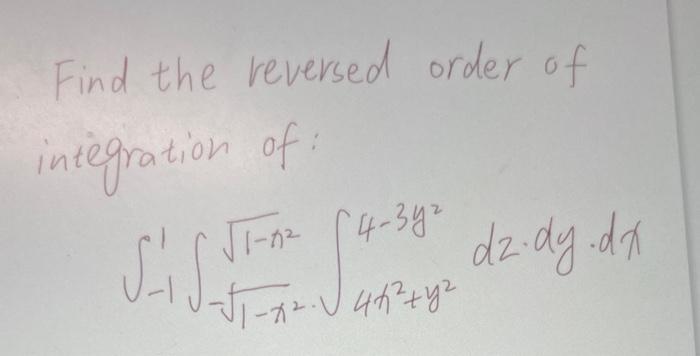 Find the reversed order of
integration of:
∫_{-1}^{1} ∫_{-√(1-x²)}^{√(1-x²)} ∫_{4x²+y²}^{4-3y²} dz·dy·dx